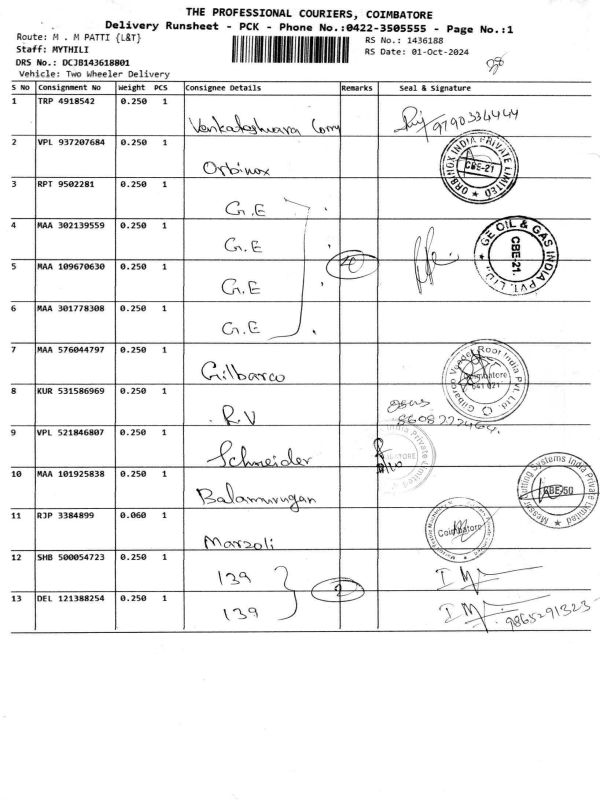 THE PROFESSIONAL COURIERS, COIMBATORE
Delivery Runsheet - PCK - Phone No.:0422-3505555 - Page No.:1
Route: M . M PATTI {L&T}
RS No.: 1436188
Staff: MYTHILI
RS Date: 01-Oct-2024
DRS No.: DCJB143618801
Vehicle: Two Wheeler Delivery
S No Consignment No Weight PCS Consignee Details Remarks Seal & Signature
1 TRP 4918542 0.250 1 Venkateshwara Comy 9790334444
2 VPL 937207684 0.250 1 Orbinox ORBINOX INDIA PRIVATE LIMITED CBE-21
3 RPT 9502281 0.250 1 G.E
4 MAA 302139559 0.250 1 G.E GE OIL & GAS INDIA PVT. LTD. CBE-21.
5 MAA 109670630 0.250 1 G.E
6 MAA 301778308 0.250 1 G.E
7 MAA 576044797 0.250 1 Gilbarco Gilbarco Veeder Root India Pvt. Ltd. Coimbatore 641 021
8 KUR 531586969 0.250 1 R.V
9 VPL 521846807 0.250 1 Schneider India Private Limited
10 MAA 101925838 0.250 1 Balamurugan Messer Cutting Systems India Private Limited CBE-50
11 RJP 3384899 0.060 1 Marzoli Coimbatore
12 SHB 500054723 0.250 1 139
13 DEL 121388254 0.250 1 139 2 9865291323